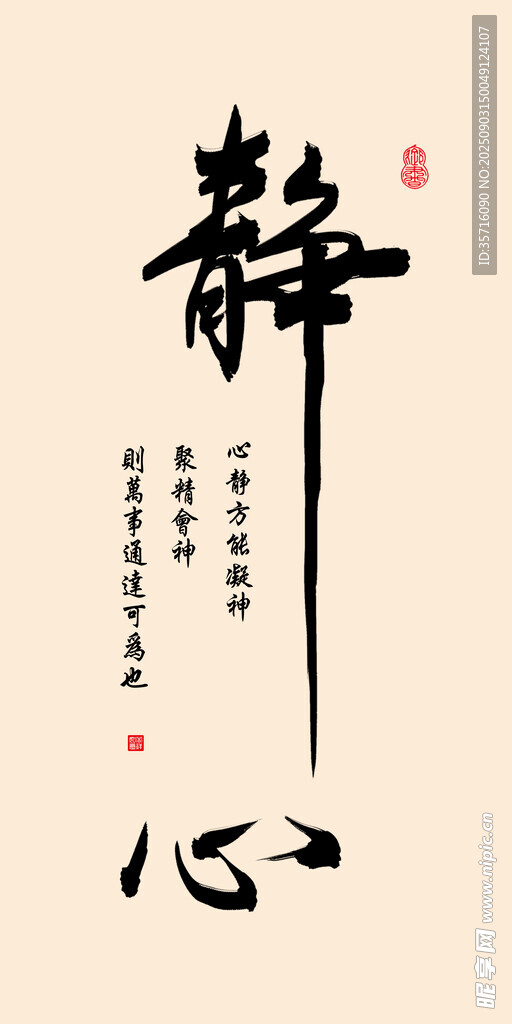 静
心
心静方能凝神
聚精會神
則萬事通達可爲也
ID:35716090 NO:20250903150049124107
昵享网 www.nipic.cn